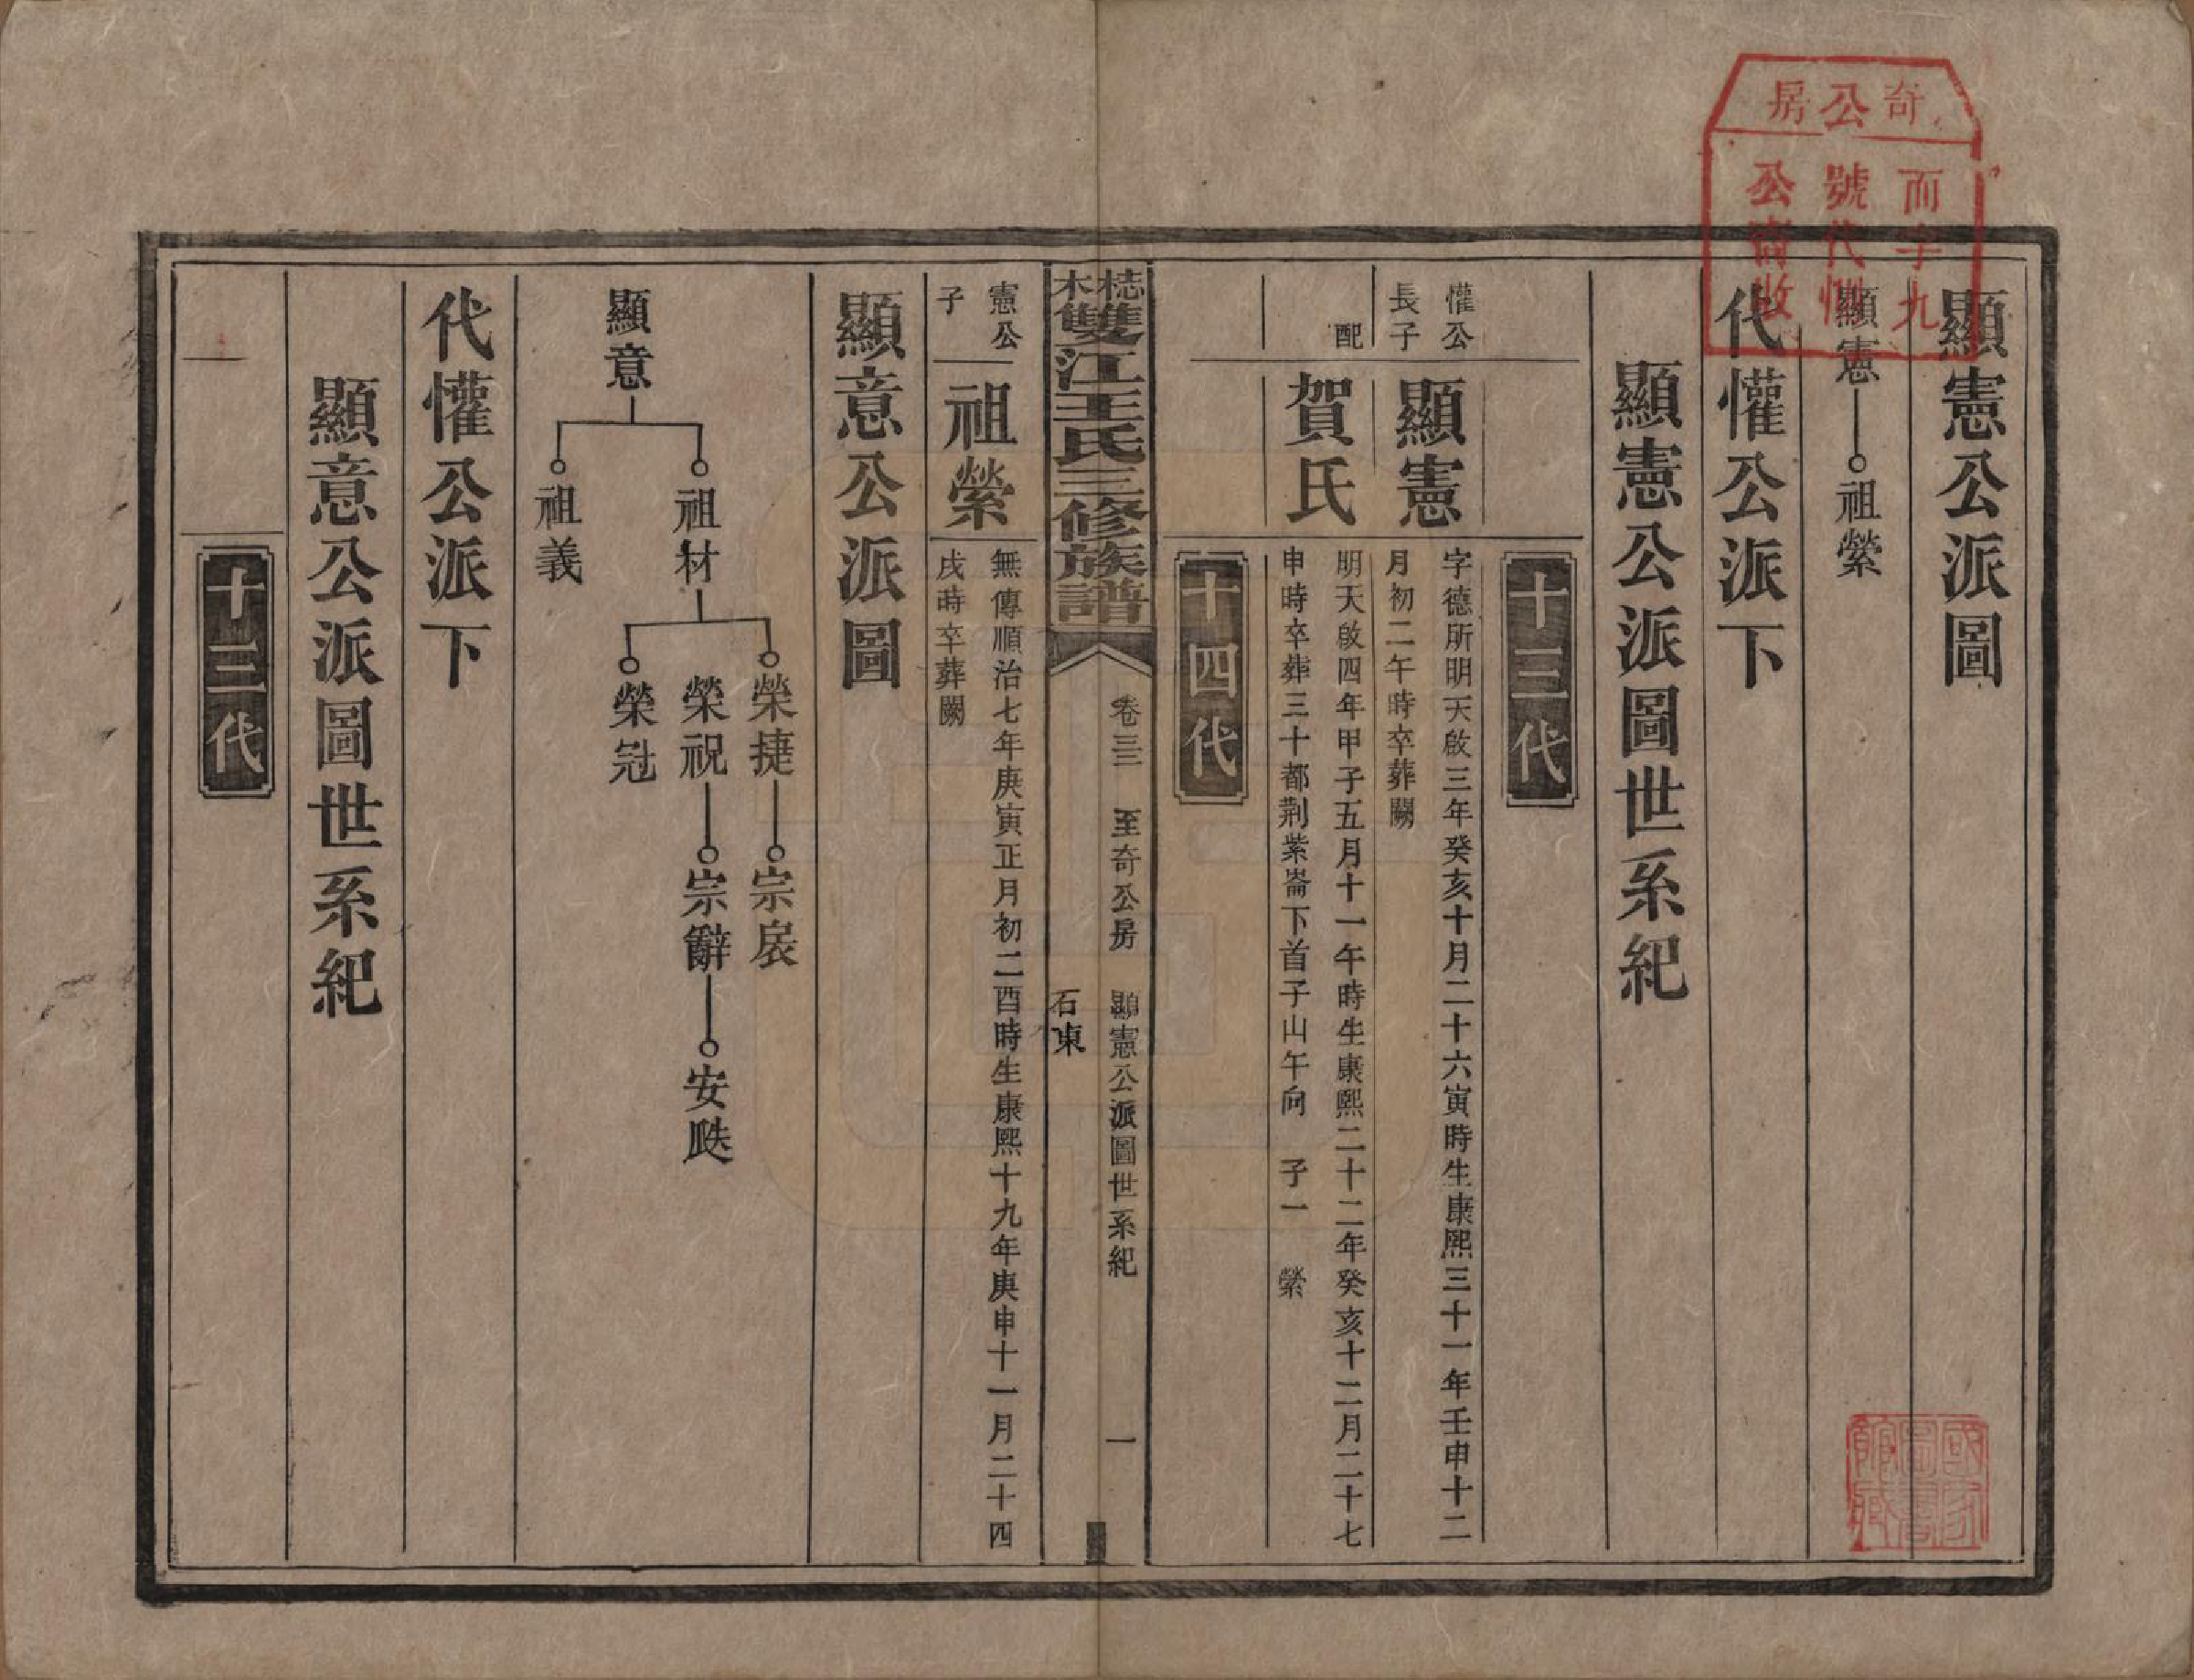 奇公房
而字九
號代
公收
顯憲公派圖
顯憲 祖縈
代懽公派下
顯憲公派圖世系紀
十三代
懽公長子
顯憲
字德所明天啟三年癸亥十月二十六寅時生康熙三十一年壬申十二
月初二午時卒葬闕
配
賀氏
明天啟四年甲子五月十一午時生康熙二十二年癸亥十二月二十七
申時卒葬三十都荆紫崙下首子山午向 子一 縈
十四代
梽木雙江王氏三修族譜
卷三 至奇公房 顯憲公派圖世系紀 一
石東
憲公子
祖縈
無傳順治七年庚寅正月初二酉時生康熙十九年庚申十一月二十四
戌時卒葬闕
顯意公派圖
顯意
祖材
祖義
榮捷 宗扆
榮祝 宗辭 安瓞
榮冠
代懽公派下
顯意公派圖世系紀
十三代
國家圖書館藏